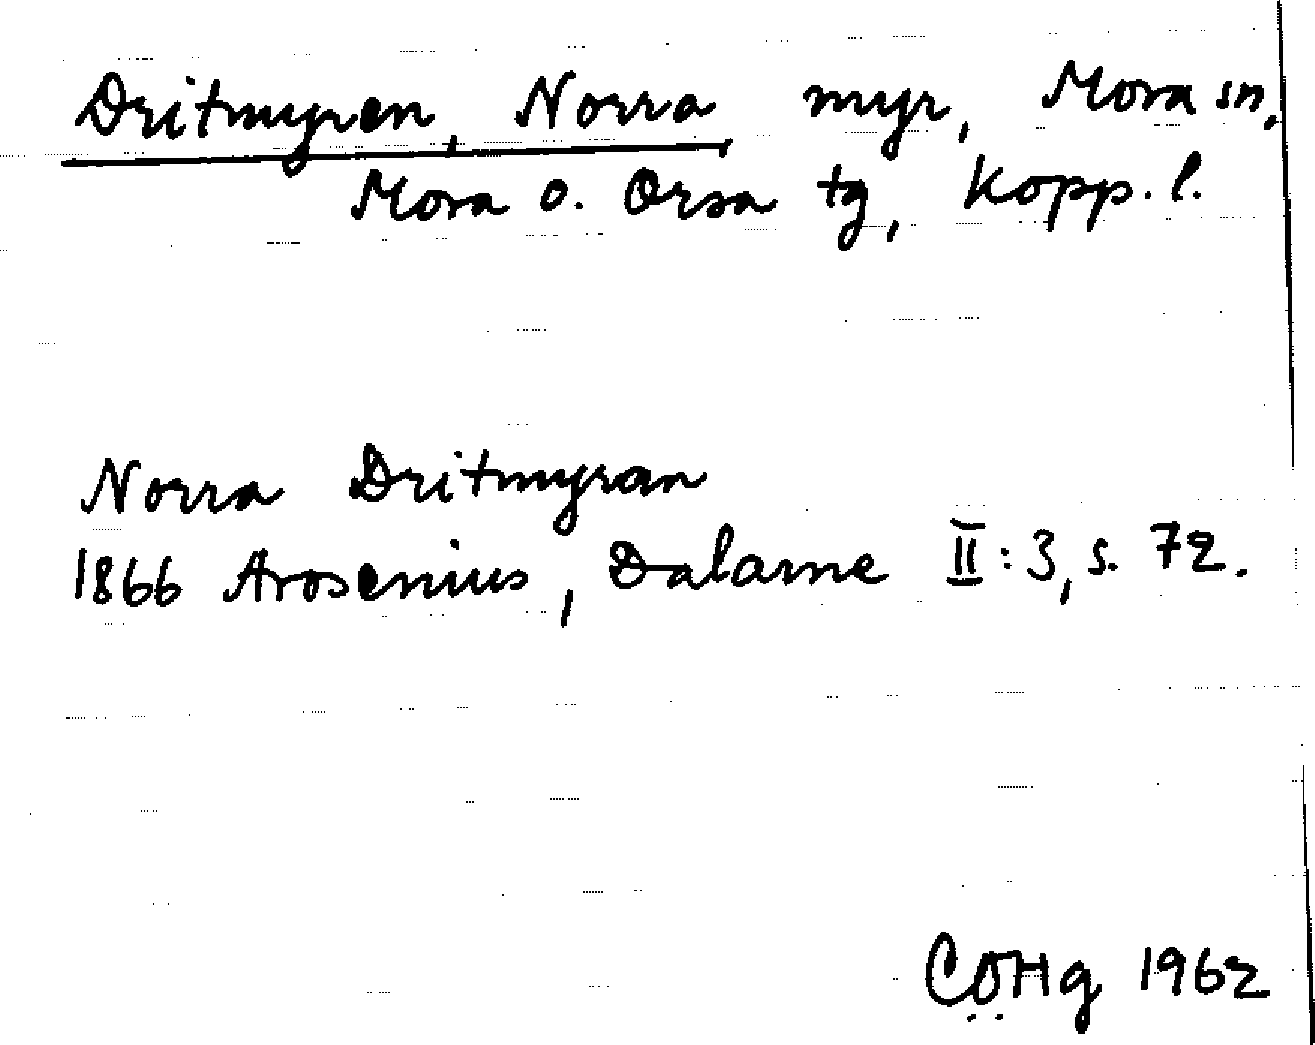 Dritmyren, Norra, myr, Mora sn,
Mora o. Orsa tg, Kopp. l.
Norra Dritmyran
1866 Arosenius, Dalarne II:3, s. 72.
CÖHg 1962